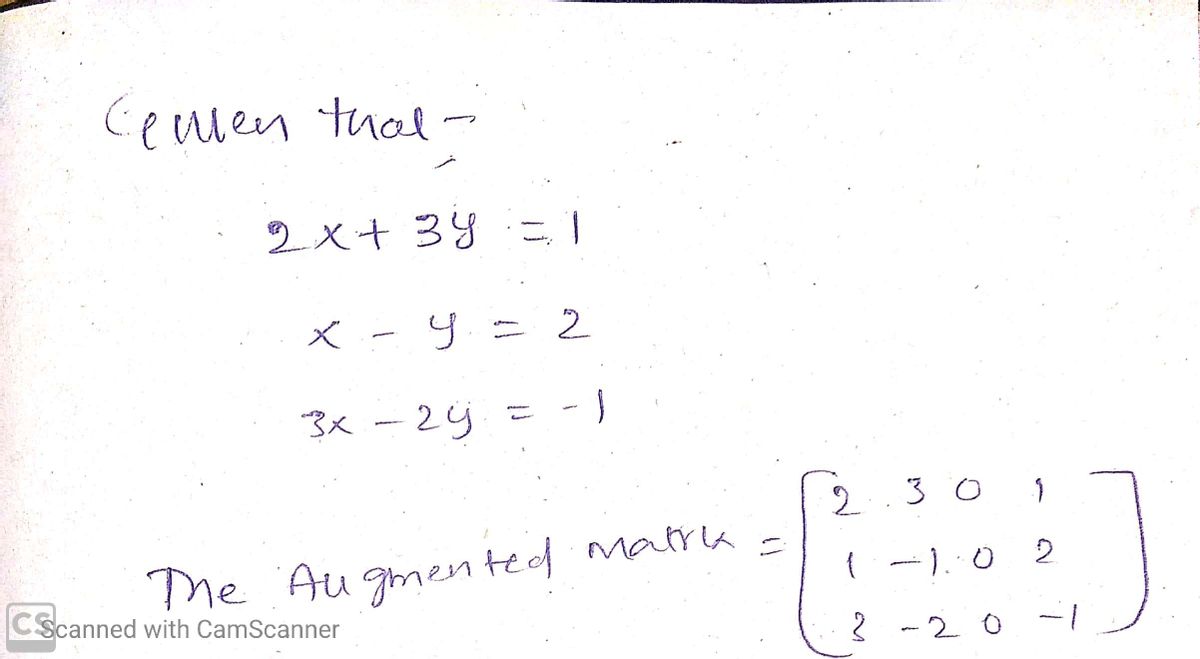 that -
2x + 3y = 1
x - y = 2
3x - 2y = -1
The Augmented matrix = [2 3 0 1
1 -1 0 2
3 -2 0 -1]
CS Scanned with CamScanner